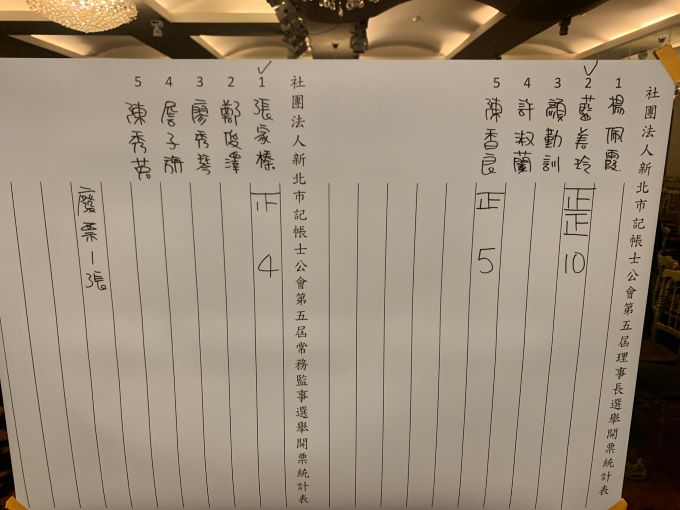 社團法人新北市記帳士公會第五屆理事長選舉開票統計表
1 楊佩霞
2 藍美玲 正正 10
3 顏勤訓
4 許淑蘭
5 陳香良 正 5
社團法人新北市記帳士公會第五屆常務監事選舉開票統計表
1 張家榛 4
2 鄭俊澤
3 廖秀琴
4 詹子
5 陳秀英
廢票1張